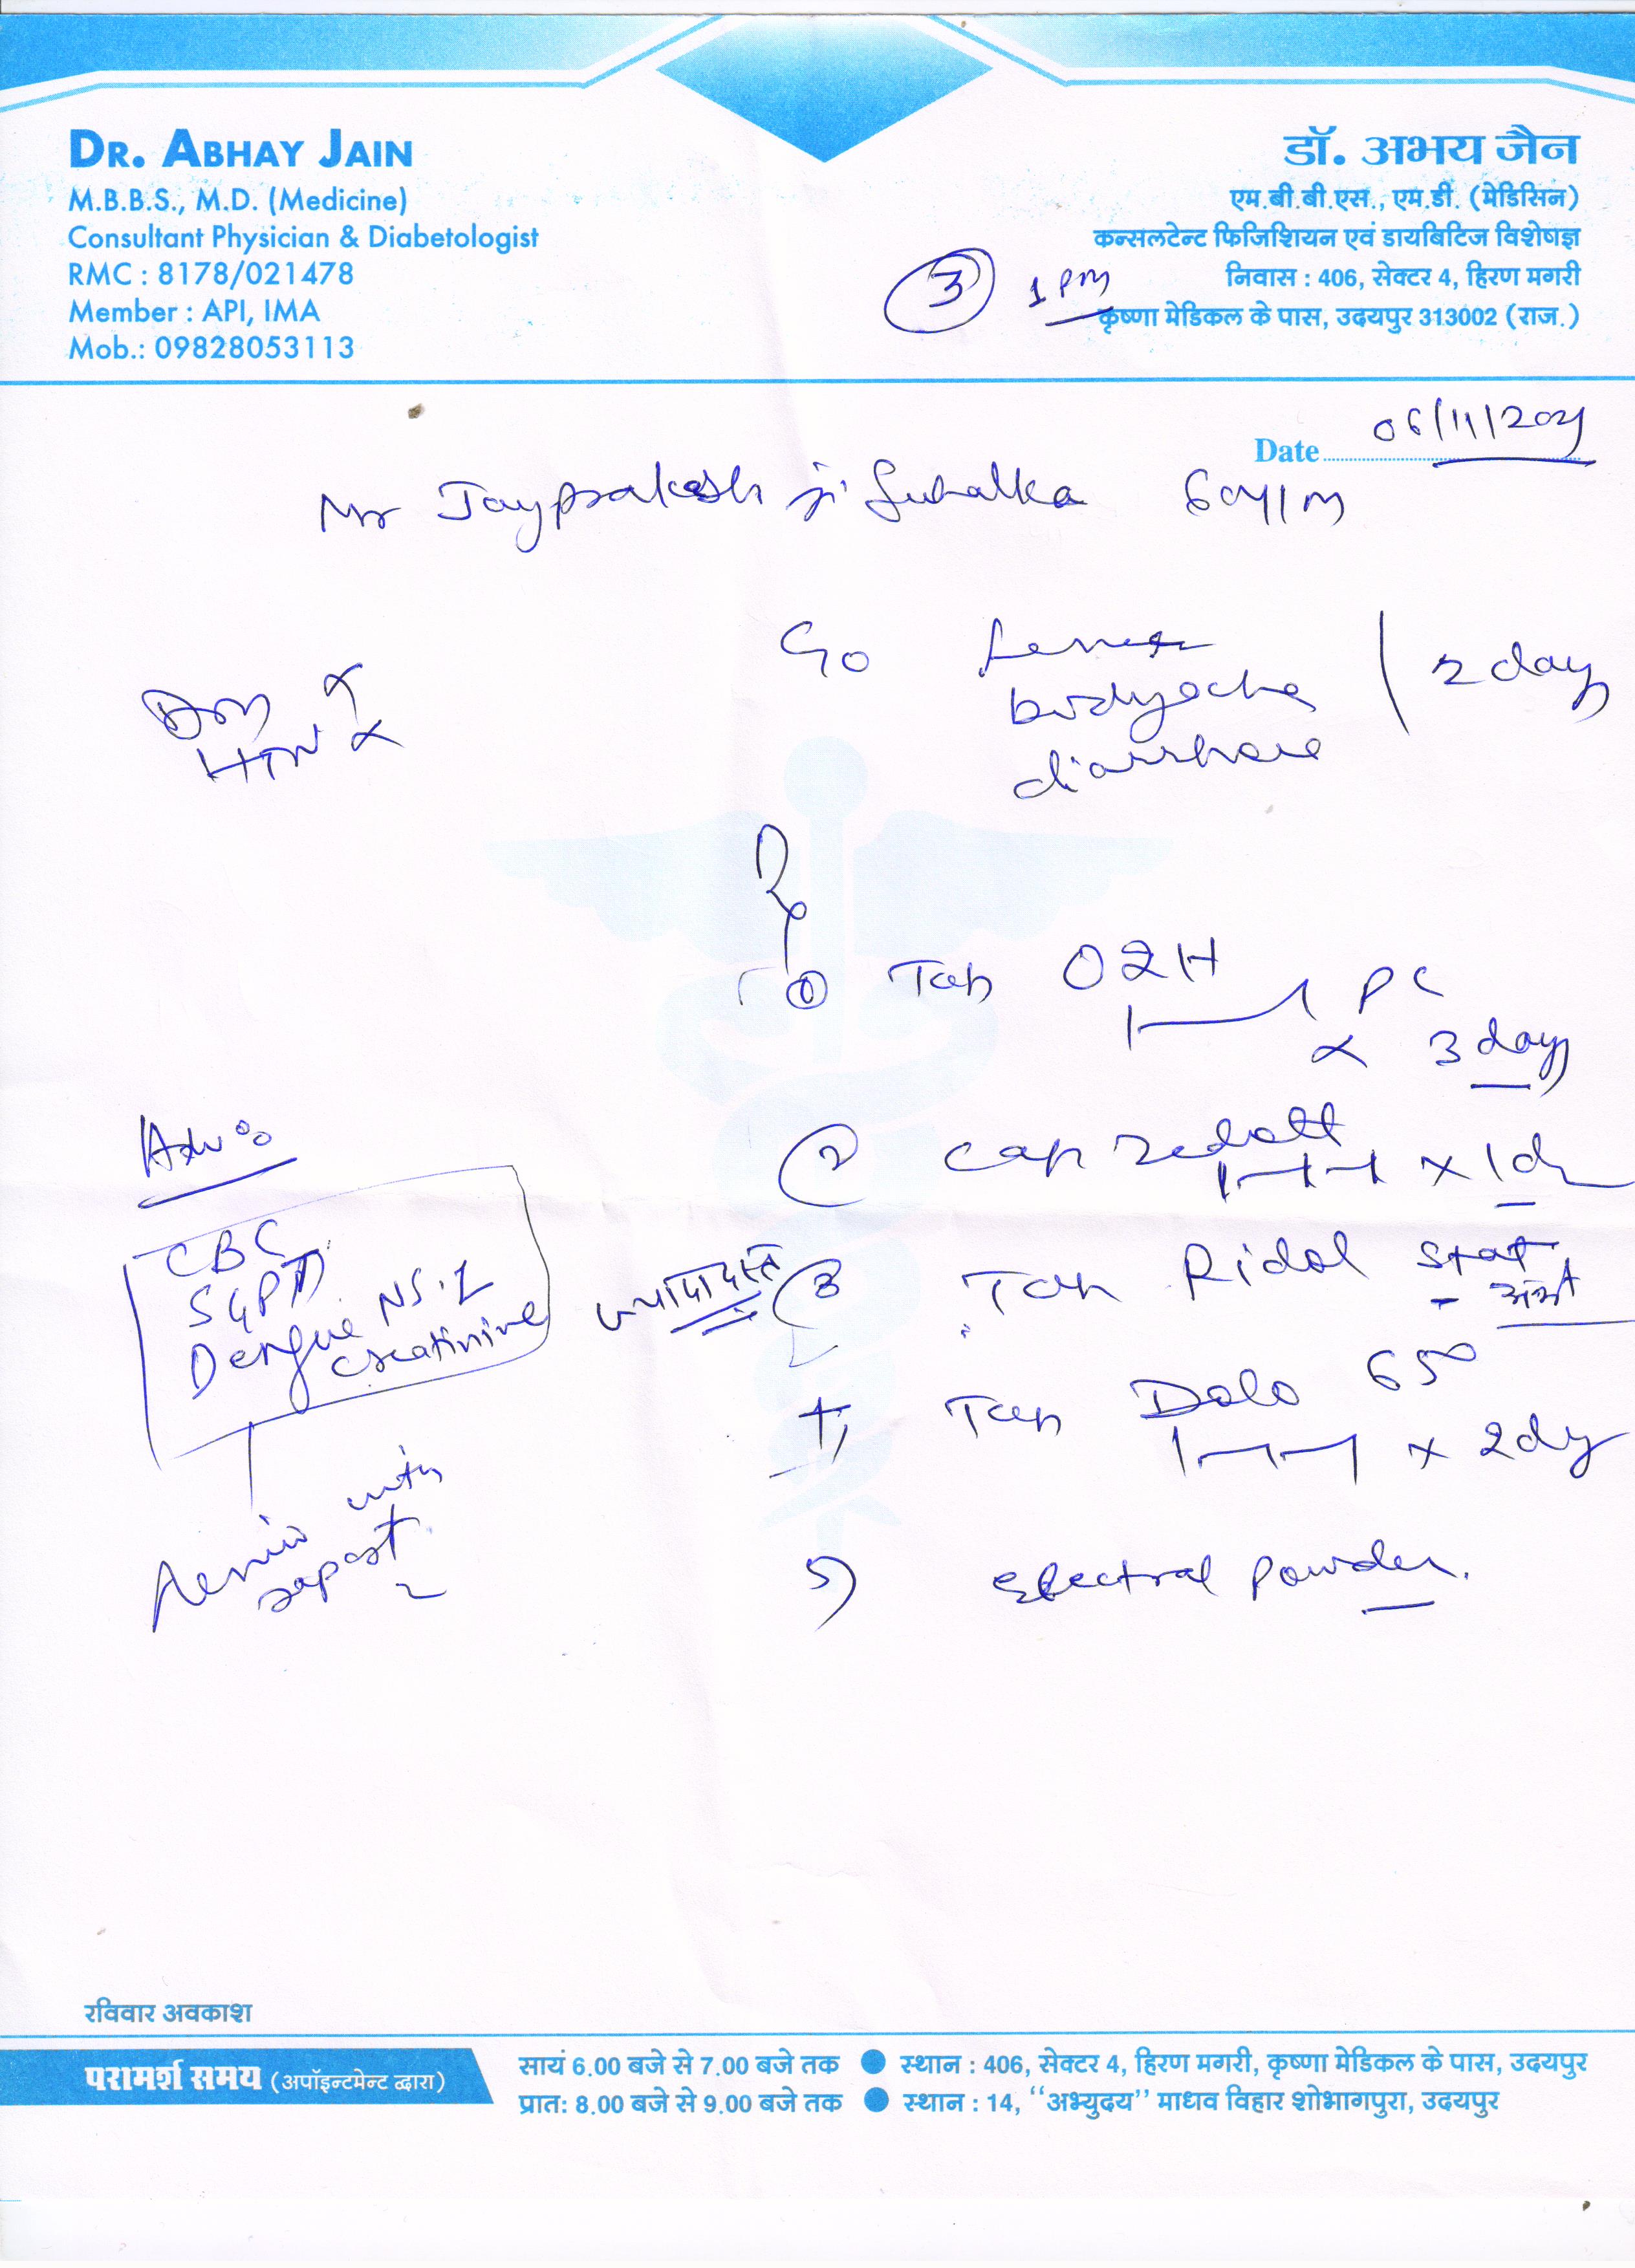 DR. ABHAY JAIN
M.B.B.S., M.D. (Medicine)
Consultant Physician & Diabetologist
RMC : 8178/021478
Member : API, IMA
Mob.: 09828053113
डॉ. अभय जैन
एम.बी.बी.एस., एम.डी. (मेडिसिन)
कन्सलटेन्ट फिजिशियन एवं डायबिटिज विशेषज्ञ
निवास : 406, सेक्टर 4, हिरण मगरी
कृष्णा मेडिकल के पास, उदयपुर 313002 (राज.)
3 1 PM
Date 06/11/2021
Mr Jayprakash ji Suhalka 60y/m
DM x
HTN x
C/o fever
bodyache
diarrhoea
2 days
Rx
1 Tab O2H
PC
x 3 days
2 Cap Redott
1-1-1 x 1d
3 Tab Ridol Stat
ज्यादा दस्त
अभी
4) Tab Dolo 650
1-1-1 x 2dy
5) Electral Powder.
Adv:
CBC
SGPT
Dengue NS.1
Creatinine
Review with
report
रविवार अवकाश
परामर्श समय (अपॉइन्टमेन्ट द्वारा)
सायं 6.00 बजे से 7.00 बजे तक ● स्थान : 406, सेक्टर 4, हिरण मगरी, कृष्णा मेडिकल के पास, उदयपुर
प्रात: 8.00 बजे से 9.00 बजे तक ● स्थान : 14, ‘‘अभ्युदय’’ माधव विहार शोभागपुरा, उदयपुर